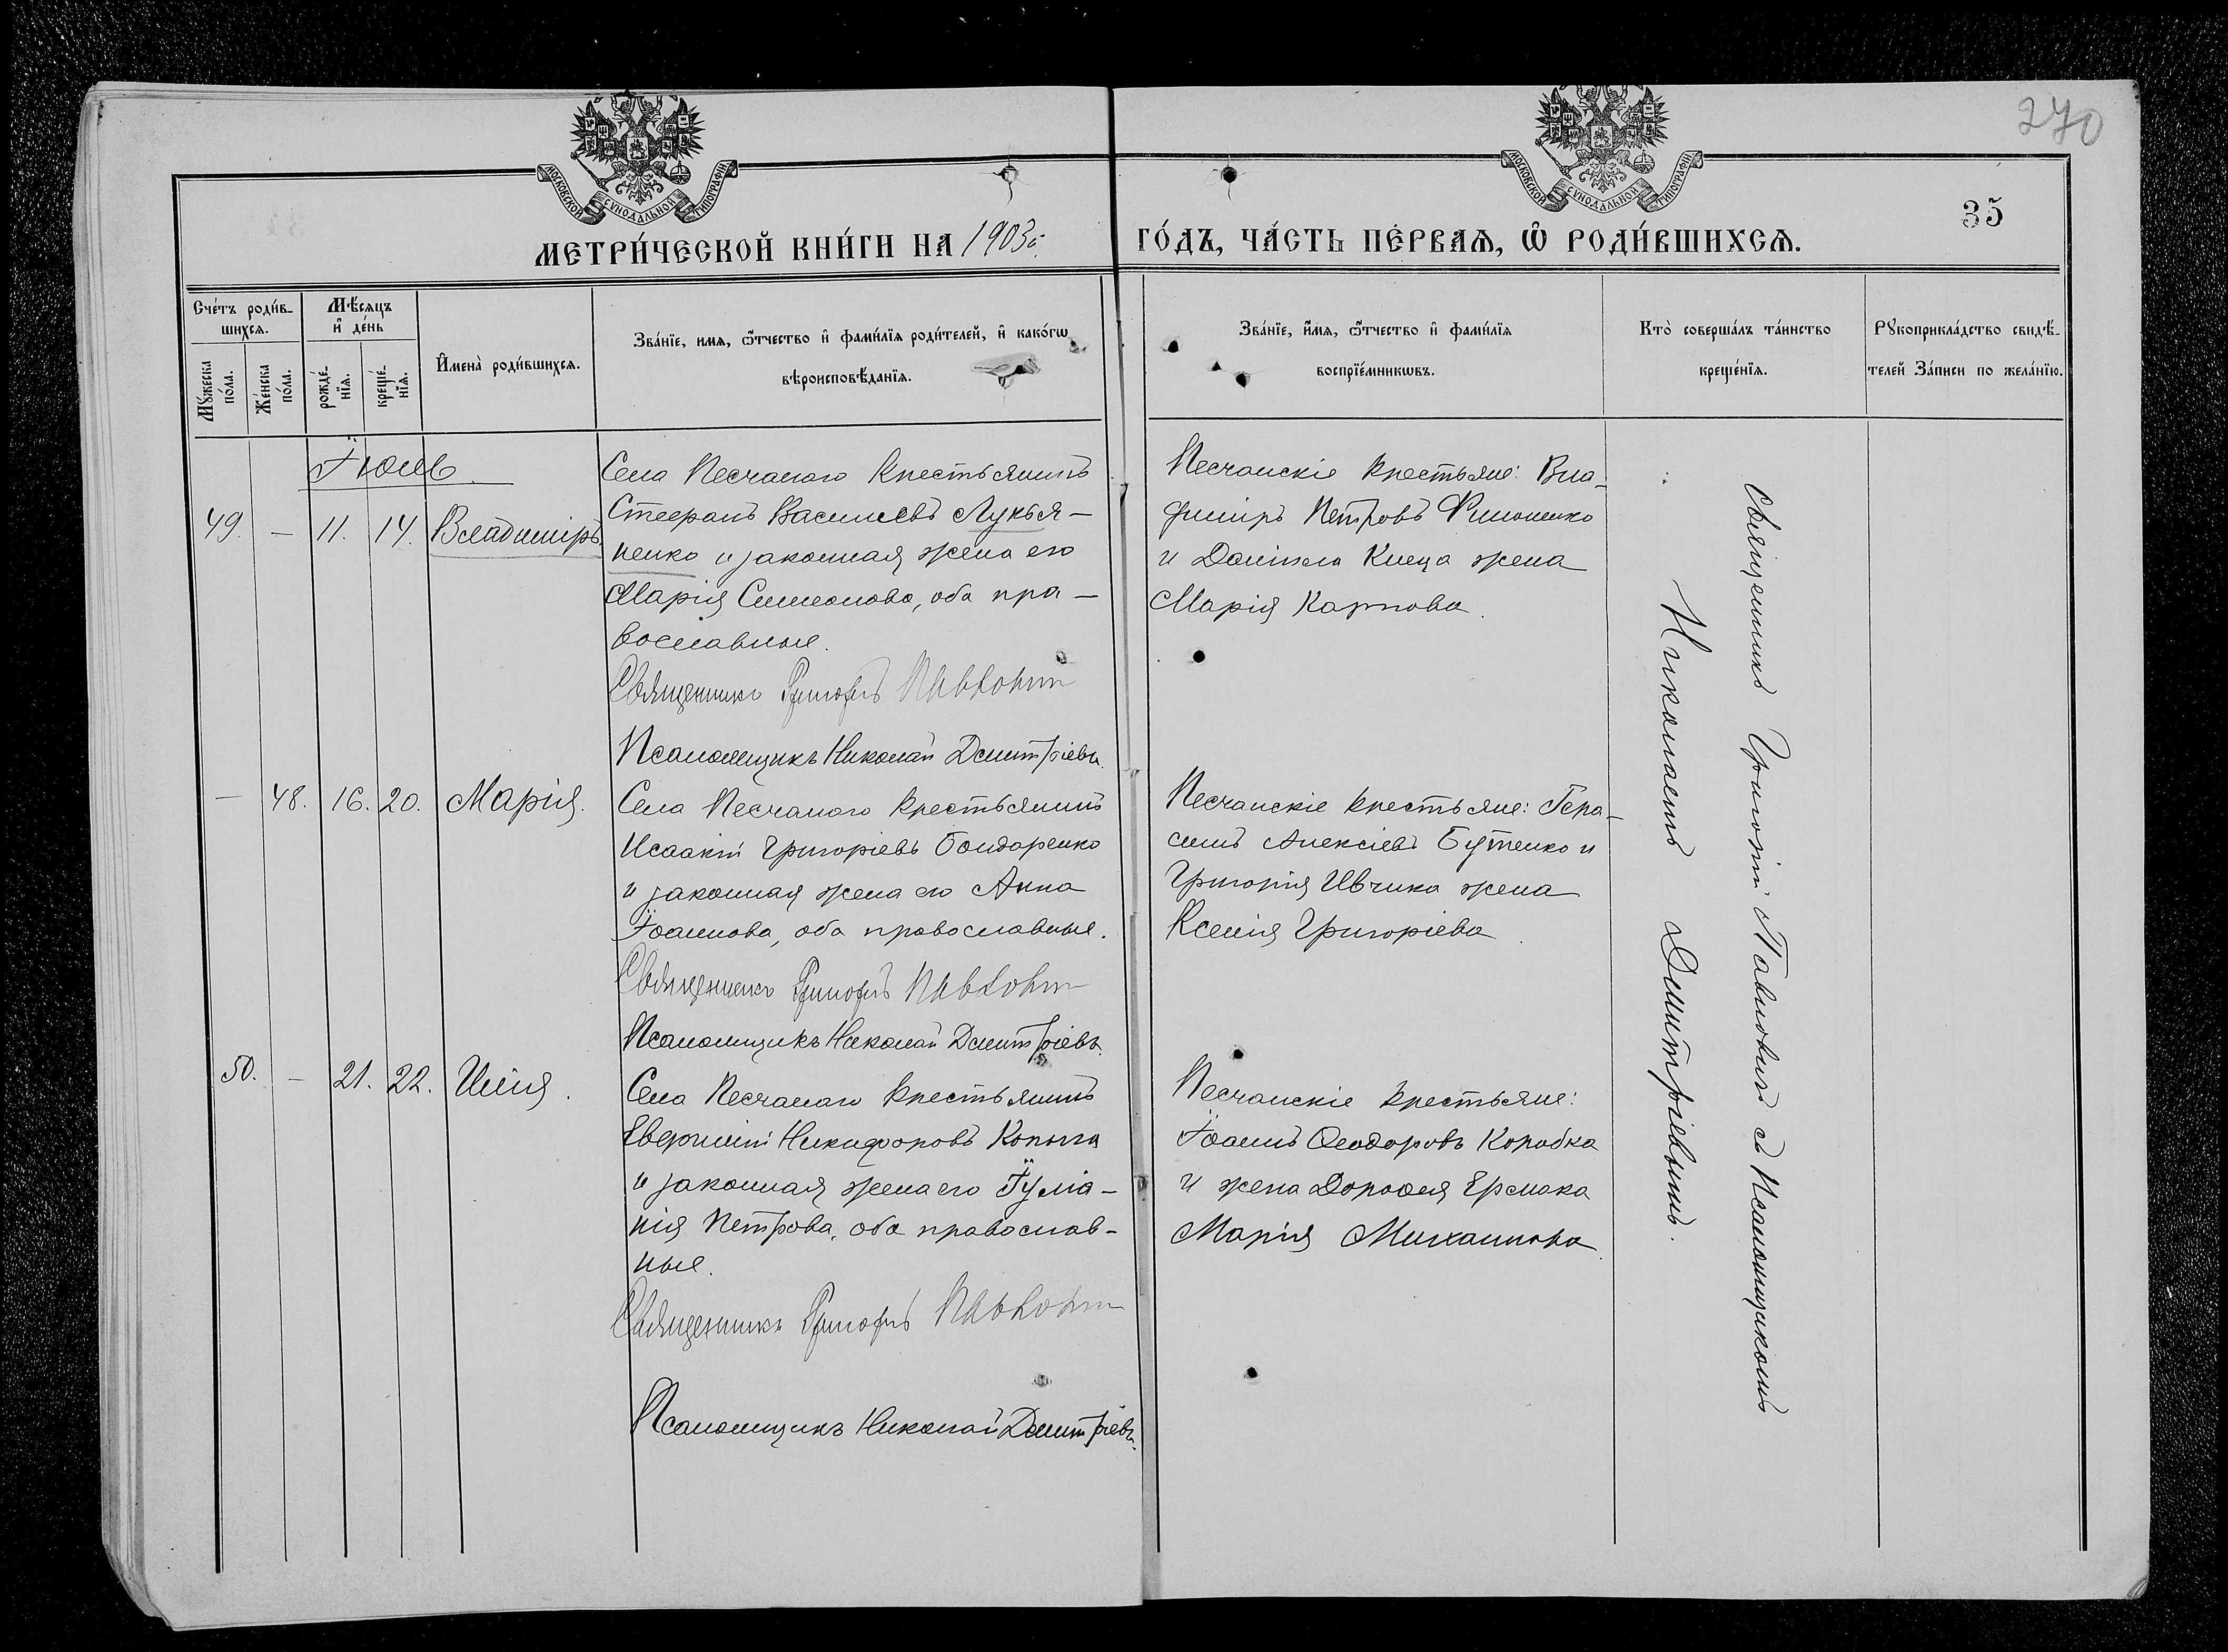 270
35
МОСКОВСКОЙ СѴНОДАЛЬНОЙ ТИПОГРАФІИ
МОСКОВСКОЙ СѴНОДАЛЬНОЙ ТИПОГРАФІИ
МЕТРИ́ЧЕСКОЙ КНИ́ГИ НА 1903й ГО́ДЪ, ЧА́СТЬ ПЕ́РВАѦ, Ѡ РОДИ́ВШИХСѦ.
Сче́тъ роди́в-
шихсѧ.
Мꙋжеска по́ла.
Же́нска по́ла.
Мѣ́сѧцъ
и҆ де́нь
рожде́-
нїѧ.
креще́-
нїѧ.
И҆мена̀ роди́вшихсѧ.
Зва́нїе, имѧ, ѻ҆́тчество и҆ фами́лїѧ роди́телей, и҆ како́гѡ
вѣроисповѣ́данїѧ.
Зва́нїе, и҆́мѧ, ѻ҆́тчество и҆ фами́лїѧ
воспрїе́мникѡвъ.
Кто̀ соверша́лъ та́инство
креще́нїѧ.
Рꙋкоприкла́дство свидѣ́-
телей За́писи по жела́нїю.
Іюль
49. — 11. 14. Владиміръ
Села Песчаного крестьянинъ
Стефанъ Василіевъ Лукья-
ненко и законная жена его
Марія Симеонова, оба пра-
вославные.
Священникъ Григорій Павловит
Псаломщикъ Николай Дмитріевъ.
Песчанскіе крестьяне: Вла-
диміръ Петровъ Филоненко
и Даніила Клеца жена
Марія Карпова.
— 48. 16. 20. Марія.
Села Песчаного крестьянинъ
Исаакій Григоріевъ Бондаренко
и законная жена его Анна
Іоаннова, оба православные.
Священникъ Григорій
Псаломщикъ Николай Дмитріевъ.
Песчанскіе крестьяне: Гера-
симъ Алексіевъ Бутенко и
Григорія Ивчика жена
Ксенія Григоріева.
50. — 21. 22. Илія.
Села Песчаного крестьянинъ
Евфимій Никифоровъ Копыла
и законная жена его Іуліа-
нія Петрова, оба православ-
ные.
Священникъ Григорій
Псаломщикъ Николай Дмитріевъ.
Песчанскіе крестьяне:
Іоаннъ Ѳеодоровъ Коробка
и жена Дороѳея Ермака
Марія Михаилова.
Священникъ Григорій Павловый съ Псаломщикомъ
Николаемъ Дмитріевымъ.